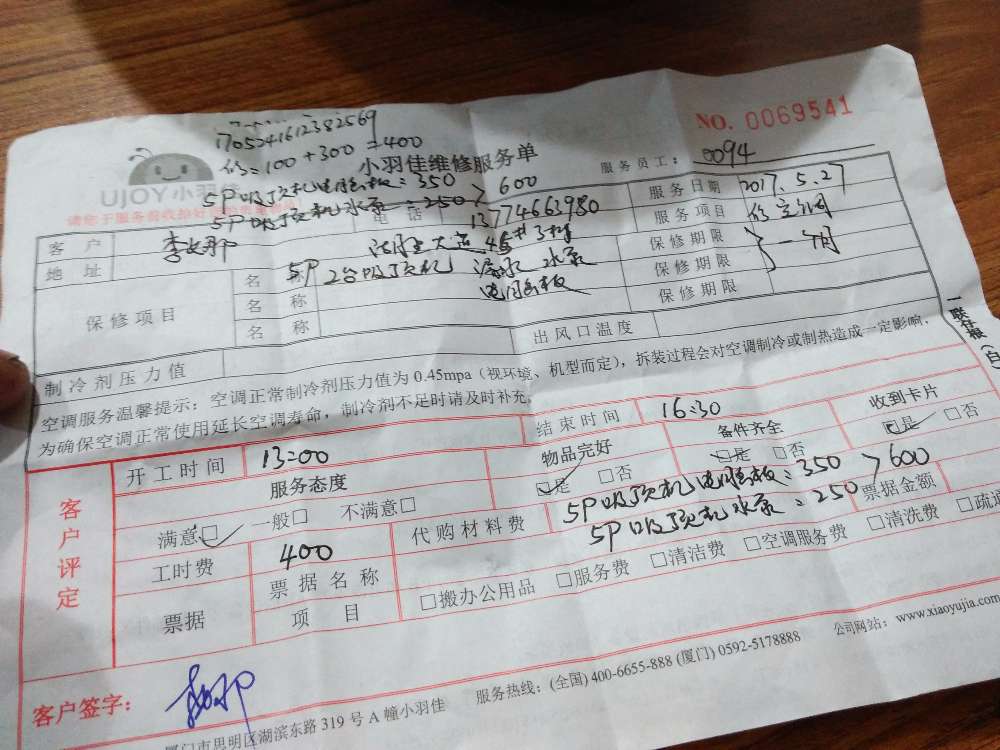 NO. 0069541
1705241612382569
修=100+300=400
小羽佳维修服务单
服务员工： 0094
UJOY 小羽
5P吸顶机电脑板=350 > 600
5P吸顶机水泵=250
服务日期 2017.5.27
客户
电话 13774663980
服务项目 修空调
地址
保修期限 一个月
保修期限
保修期限
保修项目
名称 5P 2台吸顶机 漏水 水泵
名称 电脑板
名称
制冷剂压力值
出风口温度
一联存根（白）
空调服务温馨提示：空调正常制冷剂压力值为 0.45mpa（视环境、机型而定），拆装过程会对空调制冷或制热造成一定影响，
为确保空调正常使用延长空调寿命，制冷剂不足时请及时补充。
客户评定
开工时间 13:00
结束时间 16:30
服务态度
物品完好
备件齐全
收到卡片
满意□ 一般□ 不满意□
□是 □否
□是 □否
□是 □否
工时费 400
代购材料费
5P吸顶机电脑板=350 > 600
5P吸顶机水泵=250
票据
票据名称
票据金额
项目
□搬办公用品 □服务费 □清洁费 □空调服务费 □清洗费 □疏通
客户签字：
厦门市思明区湖滨东路 319 号 A 幢小羽佳 服务热线：(全国) 400-6655-888 (厦门) 0592-5178888 公司网站：www.xiaoyujia.com